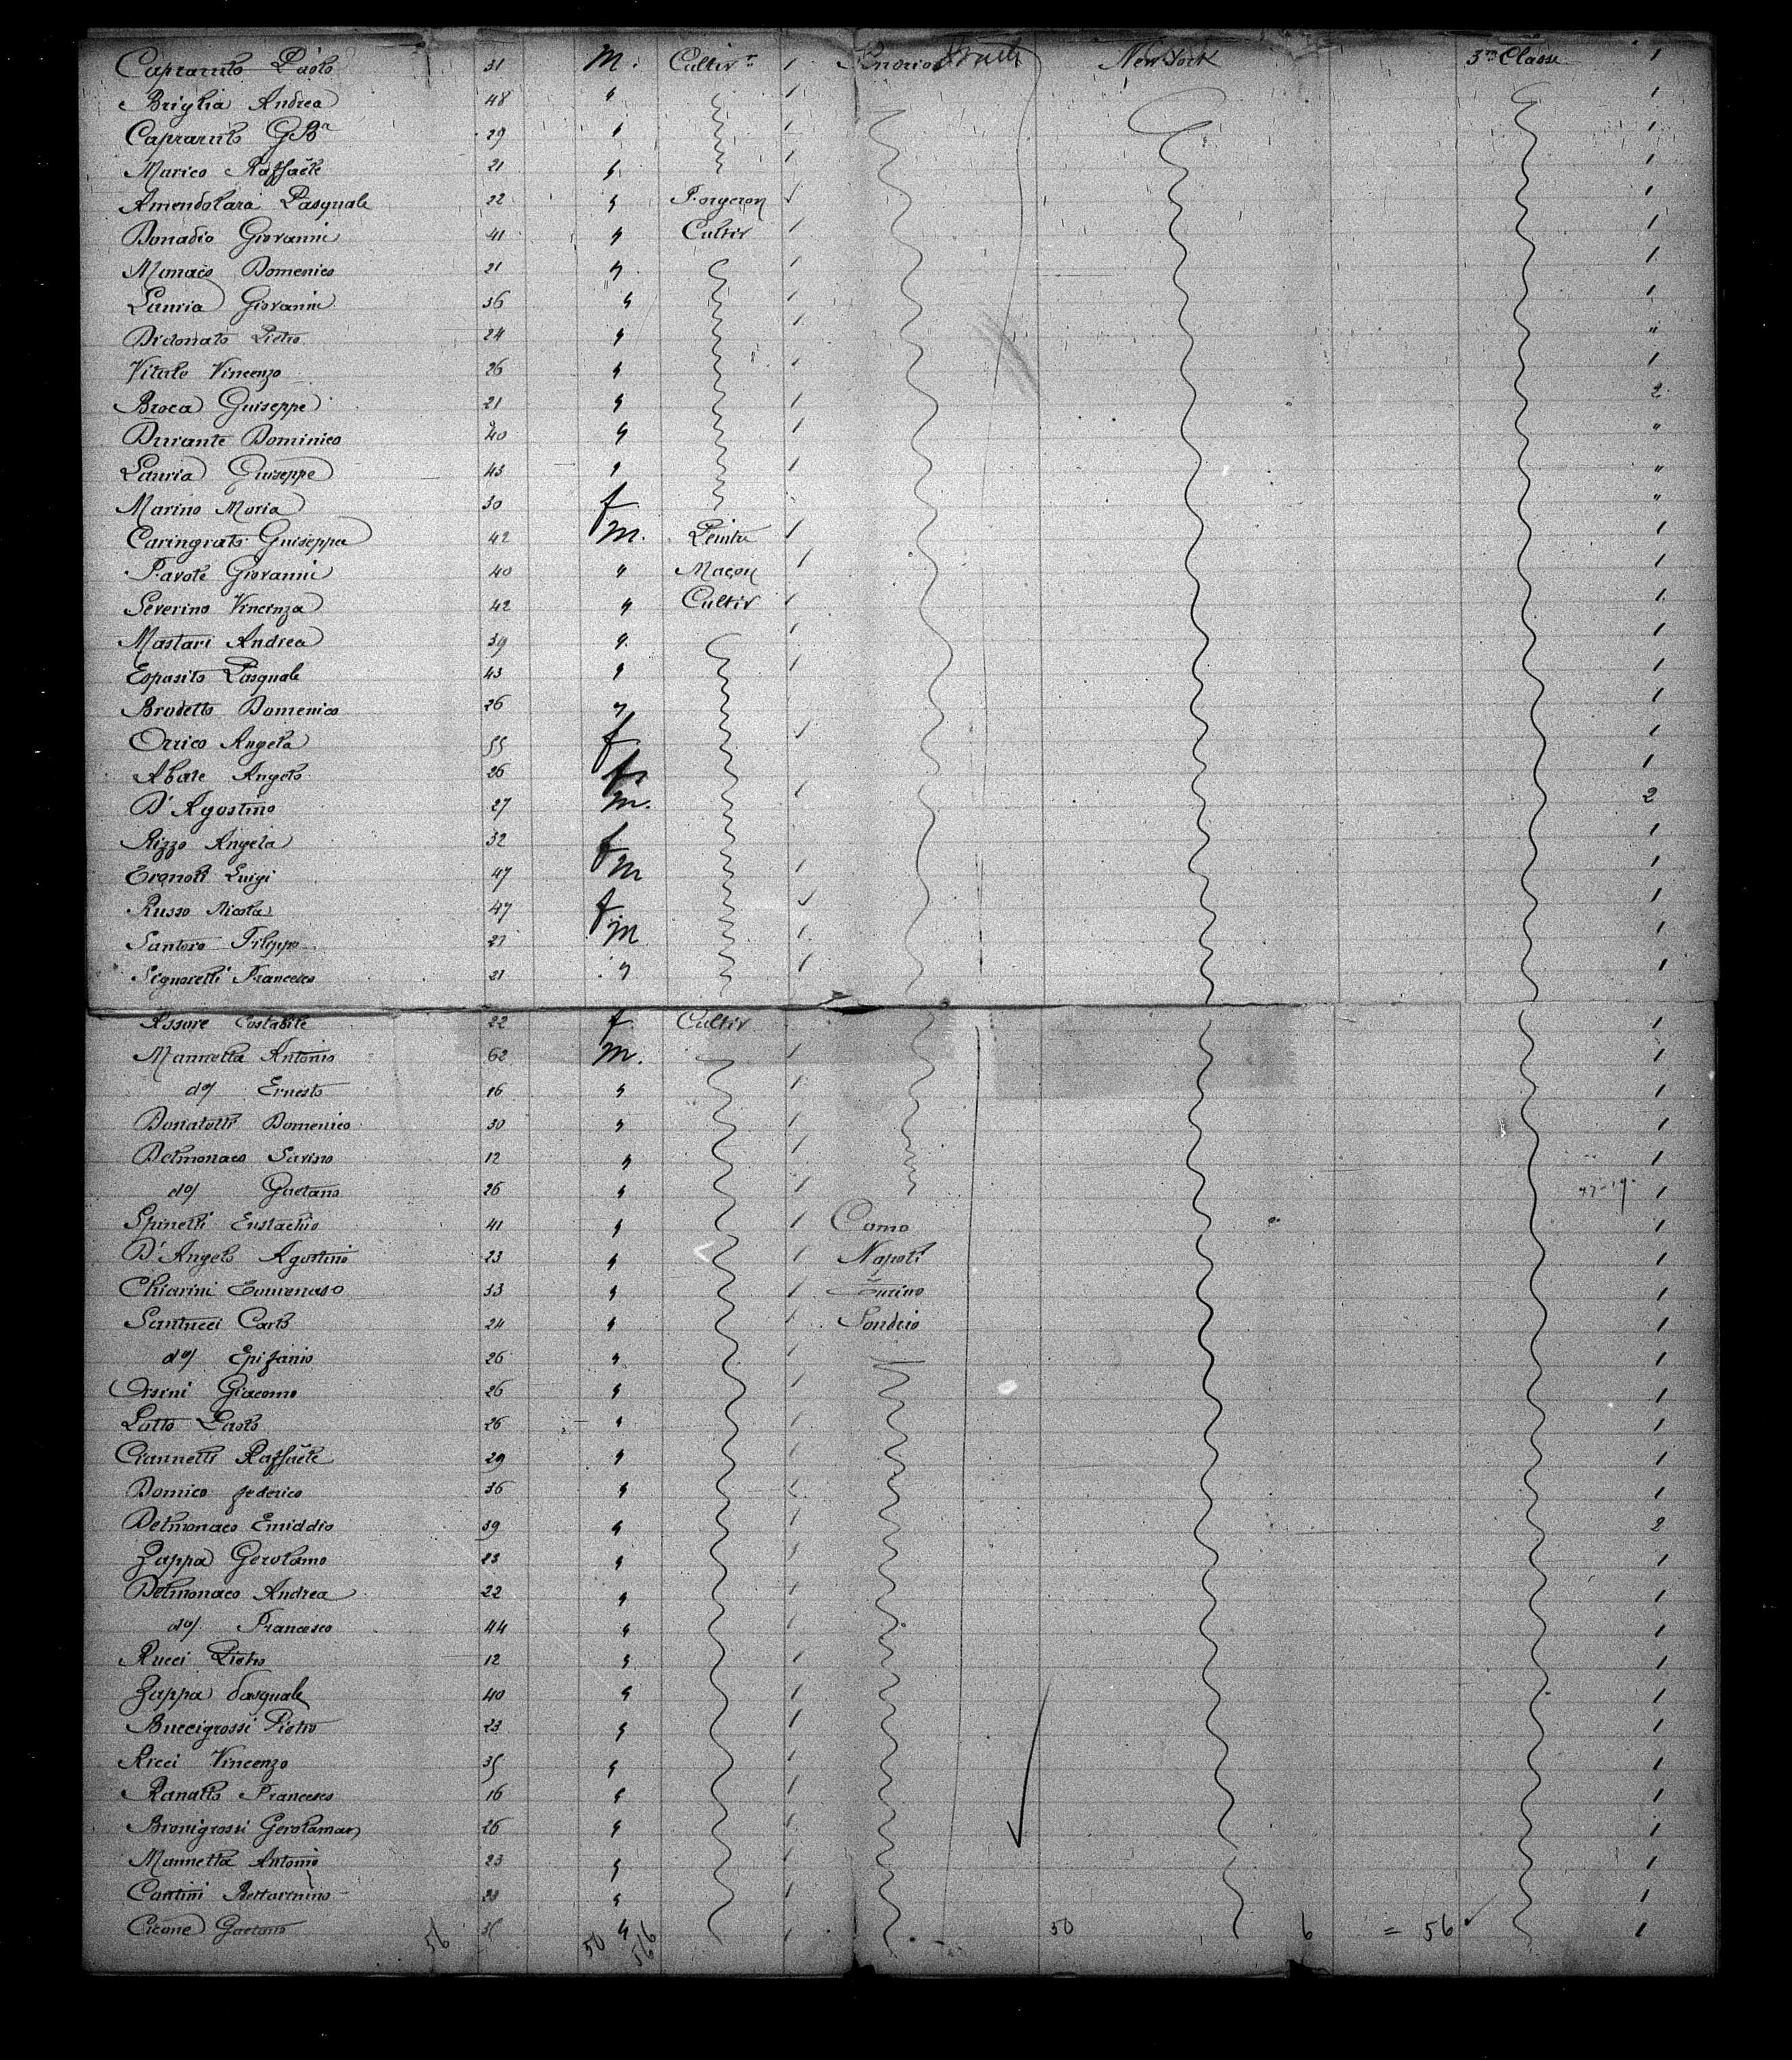 Caprarulo Paolo 31 M. Cultivr 1 Sondrio New York 3me Classe 1
Briglia Andrea 48 " 1 1
Caprarulo GBa 29 " 1 1
Marico Raffaële 21 " 1 1
Amendolara Pasquale 22 " Forgeron 1 1
Donadio Giovanni 41 " Cultiv 1 1
Monaco Domenico 21 " 1 1
Lauria Giovanni 36 " 1 1
Didonato Pietro 24 " 1 "
Vitale Vincenzo 26 " 1 1
Broca Guiseppe 21 " 1 2
Durante Dominico 40 " 1 "
Lauria Guiseppe 43 " 1 "
Marino Maria 30 f "
Caringrato Guiseppa 42 M. Peintre 1 1
Favole Giovanni 40 " Maçon 1 1
Severino Vincenza 42 " Cultiv 1 1
Mastari Andrea 39 " 1 1
Esposito Pasquale 43 " 1 1
Brodetto Domenico 26 " 1
Orrico Angela 55 f 1 1
Abate Angelo 26 1
D'Agostino 27 m. 1 2
Rizzo Angela 32 f 1
Luigi 47 m 1 1
Russo Nicola 47 f 1 1
Santoro Filippo 27 m 1 1
Signorelli Francesco 21 " 1 1
Costabile 22 f Cultiv 1
Mannella Antonio 62 m. 1 1
do/ Ernesto 16 " 1 1
Donatelli Domenico 30 " 1 1
Delmonaco Savino 12 " 1 1
do/ Gaetano 26 " 1 1
Spinelli Eustachio 41 " 1 Como 1
D'Angelo Agostino 23 " 1 Napoli 1
Chiarini Tommaso 33 " 1 Turino 1
Santucci Carlo 24 " 1 Sondrio 1
do/ Epifanio 26 " 1 1
Orsini Giacomo 26 " 1 1
Lollo Paolo 26 " 1 1
Ciannelli Raffaële 29 " 1 1
Domico federico 36 " 1 1
Delmonaco Emiddio 39 " 1 2
Zappa Gerolamo 23 " 1 1
Delmonaco Andrea 22 " 1 1
do/ Francesco 44 " 1 1
Rucci Pietro 12 " 1 1
Zappa Pasquale 40 " 1 1
Buccigrossi Pietro 23 " 1 1
Ricci Vincenzo 35 " 1 1
Ranallo Francesco 16 " 1 1
Bronigrossi 26 " 1 1
Mannella Antonio 23 " 1 1
Cantini " 1 1
Cicone Gaetano " 1 50 6 = 56 1
56 50 56